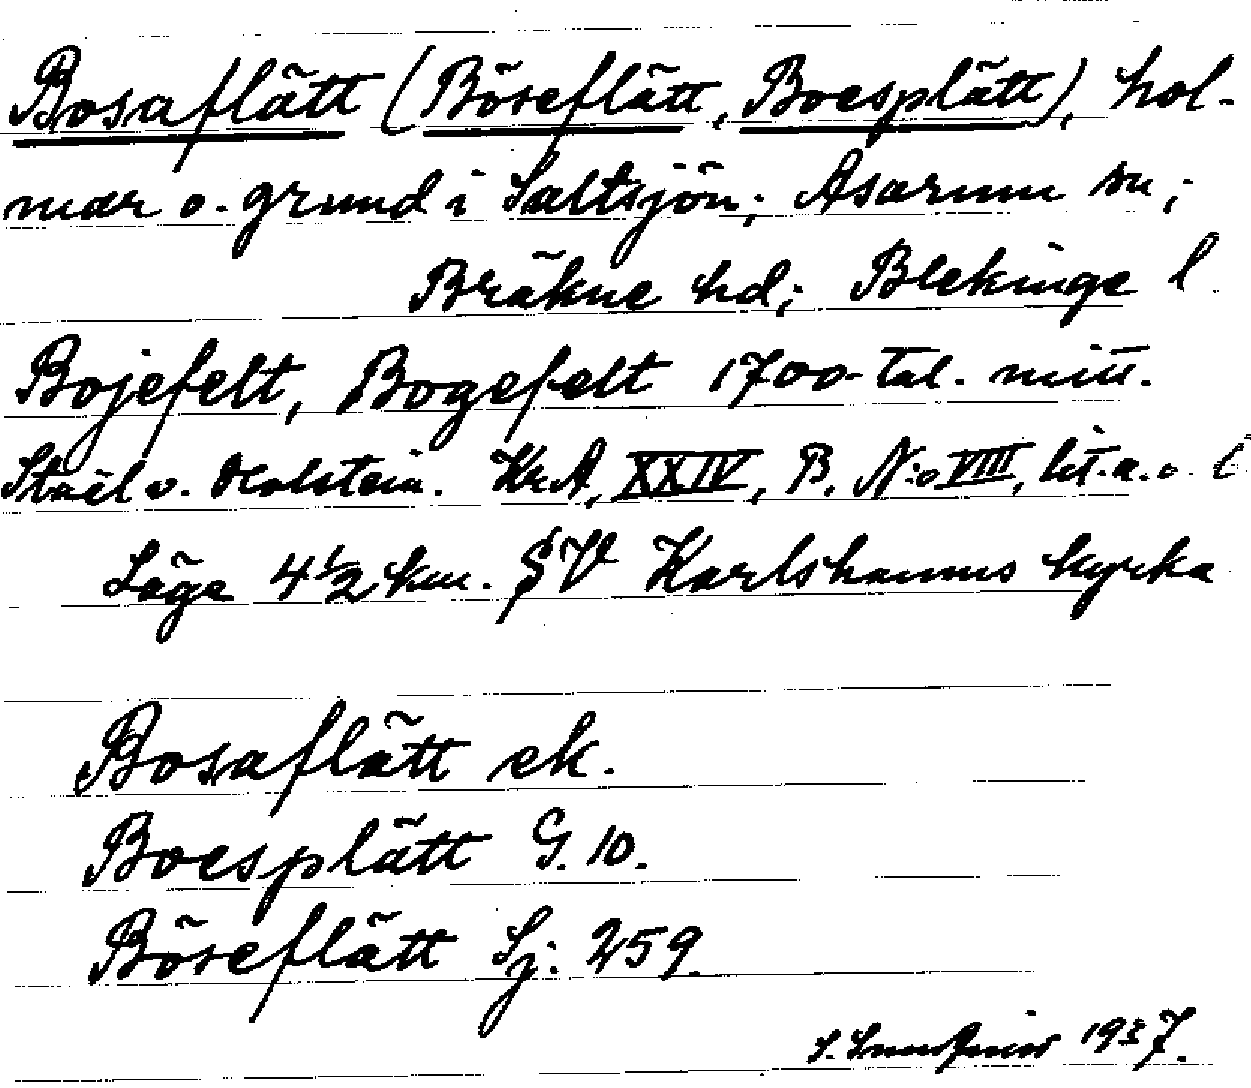 Bosaflätt (Böseflätt, Boesplätt), hol-
mar o. grund i Saltsjön; Asarum sn;
Bräkne hd; Blekinge l
Bojefelt, Bogefelt 1700-tal. mitt.
Staël v. Holstein. Kr.A, XXIV, B. N:o VIII, lit. a. o.
Läge 4 1/2 km. SV Karlshamns kyrka
Bosaflätt ek.
Boesplätt G. 10.
Böseflätt Sj. 259.
S. 1937.